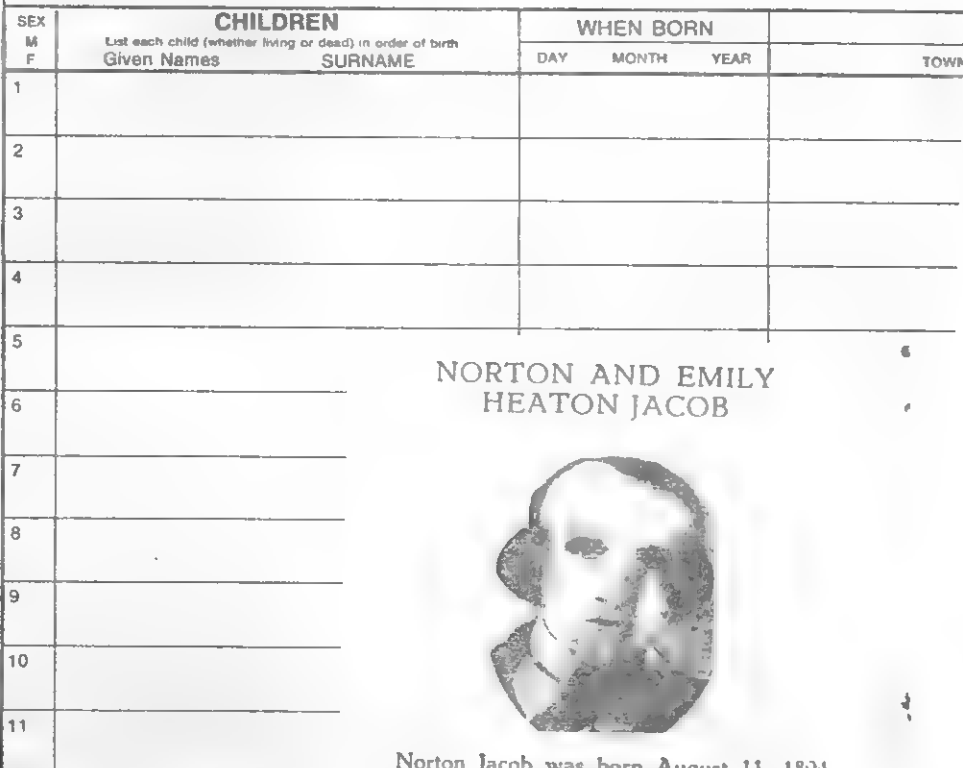 SEX
M
F
CHILDREN
List each child (whether living or dead) in order of birth
Given Names SURNAME
WHEN BORN
DAY MONTH YEAR
TOWN
1
2
3
4
5
6
7
8
9
10
11
NORTON AND EMILY
HEATON JACOB
Norton Jacob was born August 11,